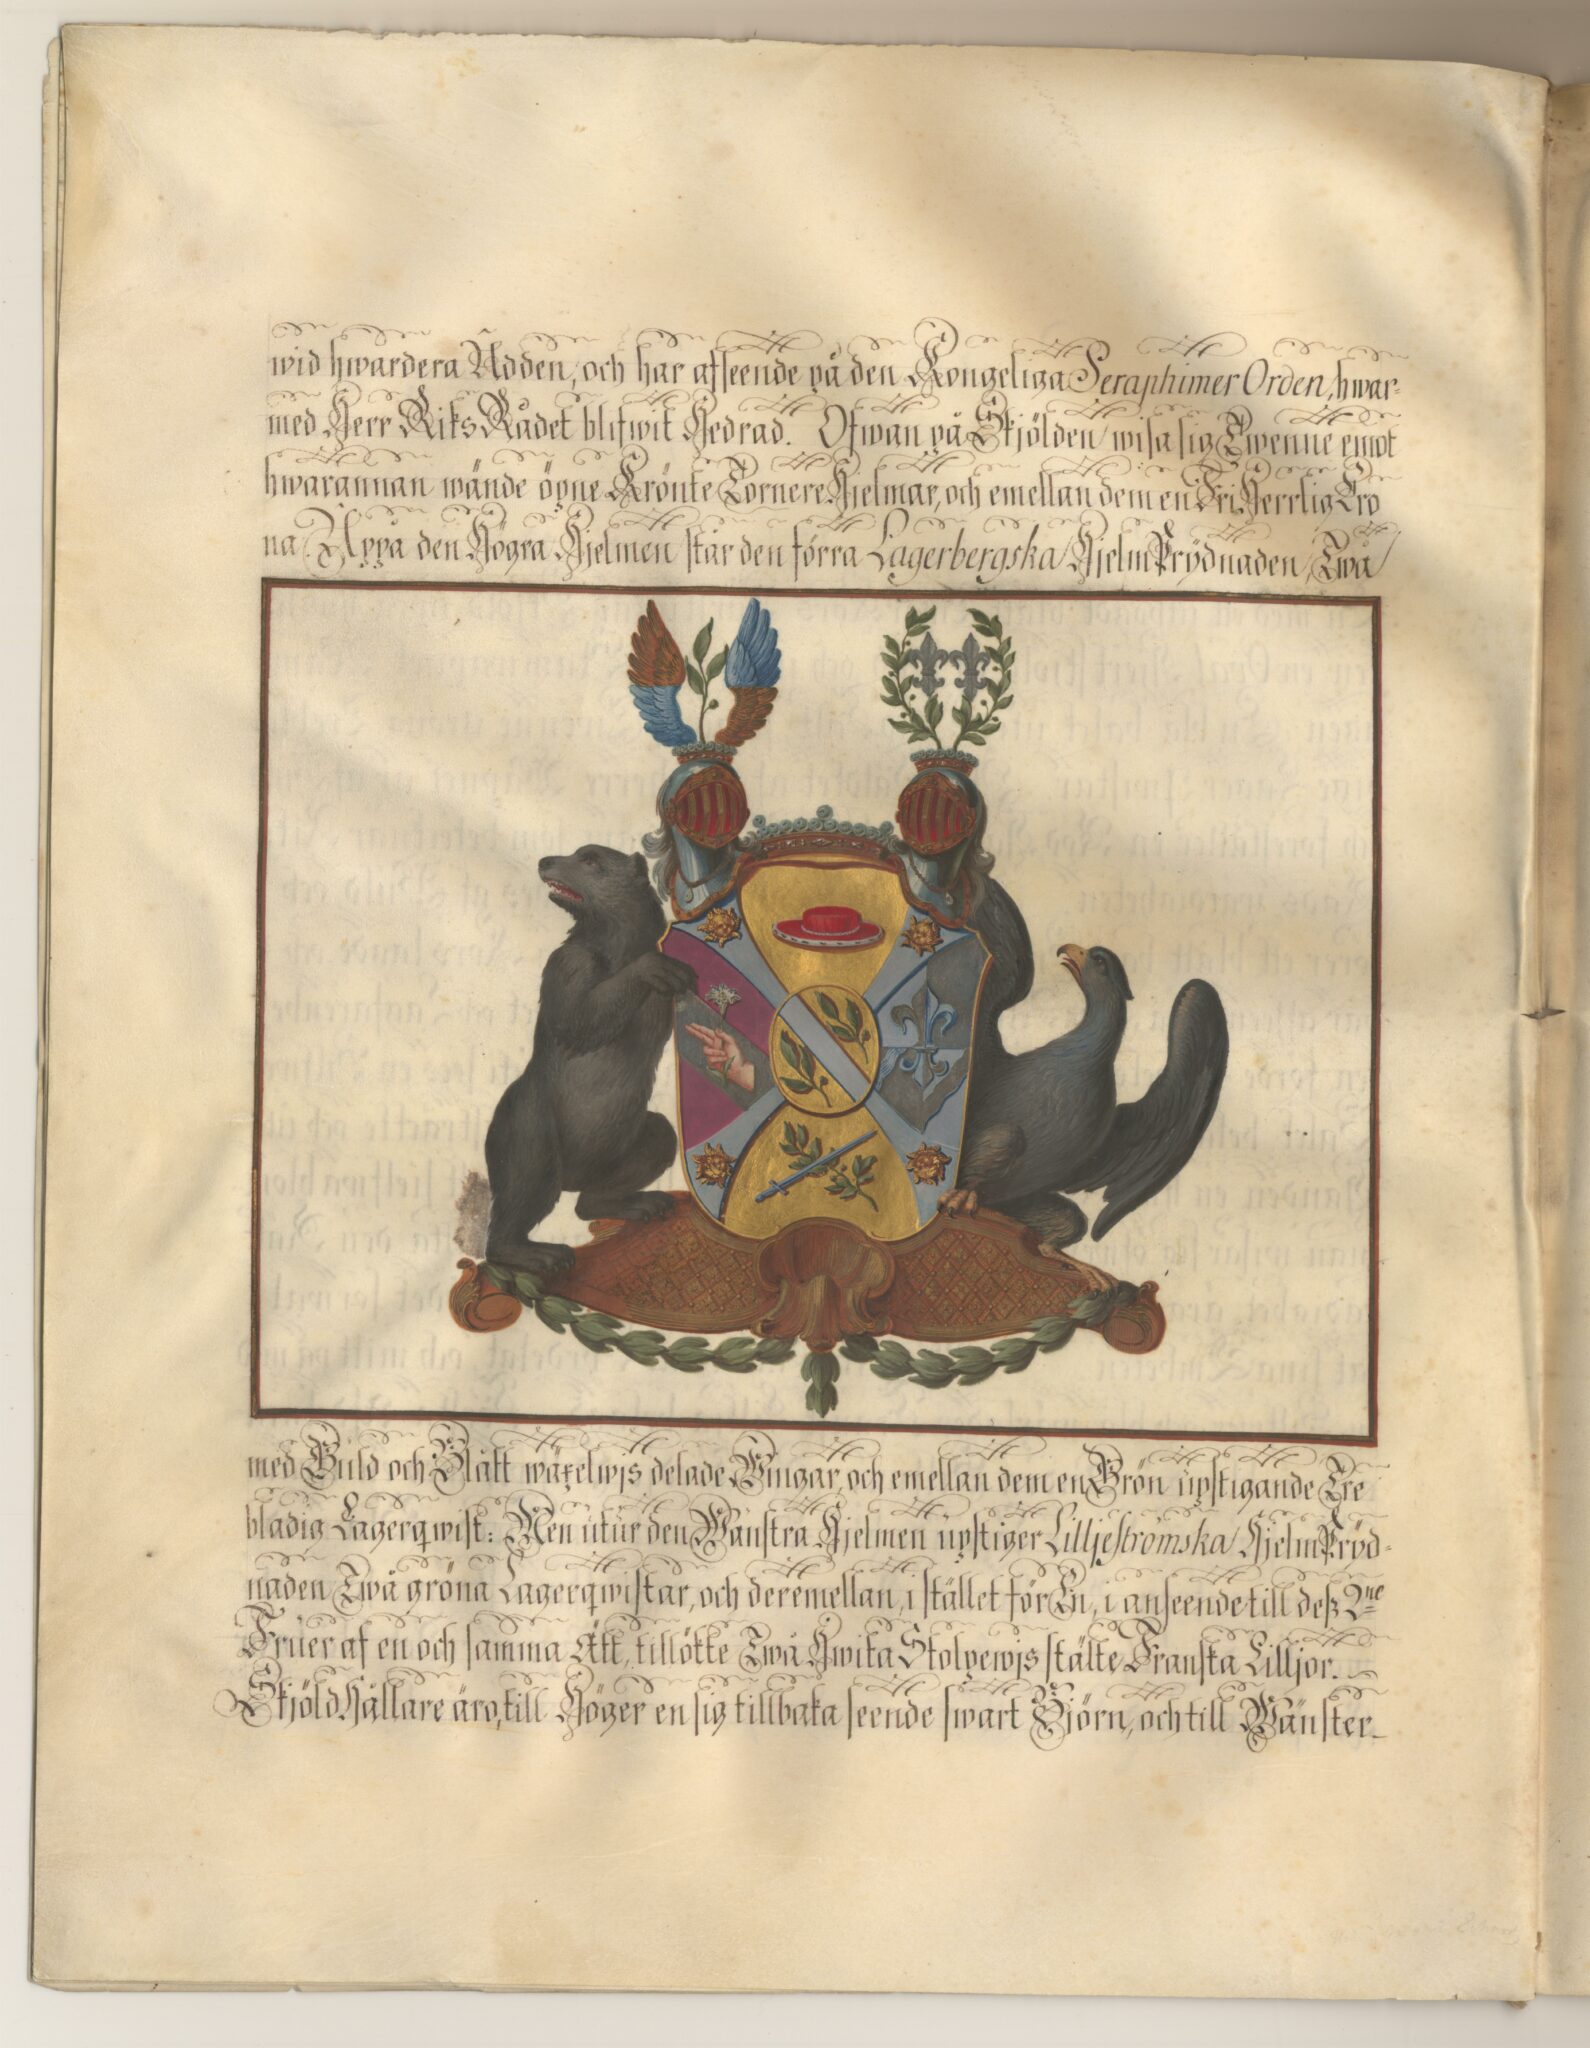 wid hwardera Udden, och har afseende på den Kongeliga Seraphimer Orden, hwar-
med Herr Riks Rådet blifwit Hedrad. Ofwan på Skjölden wisa sig Twenne emot
hwarannan wände öpne Krönte Tornere Hjelmar, och emellan dem en Fri Herrlig Cro
na. Uppå den Högra Hjelmen står den förra Lagerbergska Hjelm Prydnaden, Twå
med Guld och Blått wäxelwjs delade Wingar, och emellan dem en Grön upstigande Tre
bladig Lagerqwist: Men utur den Wänstra Hjelmen upstiger Lilljeströmska Hjelm Pryd-
naden Twå gröna Lagerqwistar, och deremellan, i stället för En, i anseende till deß 2ne
Fruer af en och samma Ätt, tillökte Twå Hwita Stolpewjs stälte Franska Lilljor.
Skjöld Hållare äro, till Höger en sig tillbaka seende swart Björn, och till Wänster